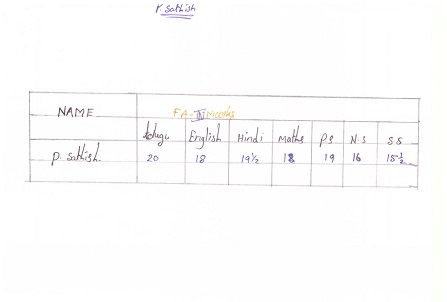 P. Sathish
NAME
FA-III Marks
telugu English Hindi Maths P.S N.S S.S
P. Sathish 20 18 19½ 18 19 16 15½